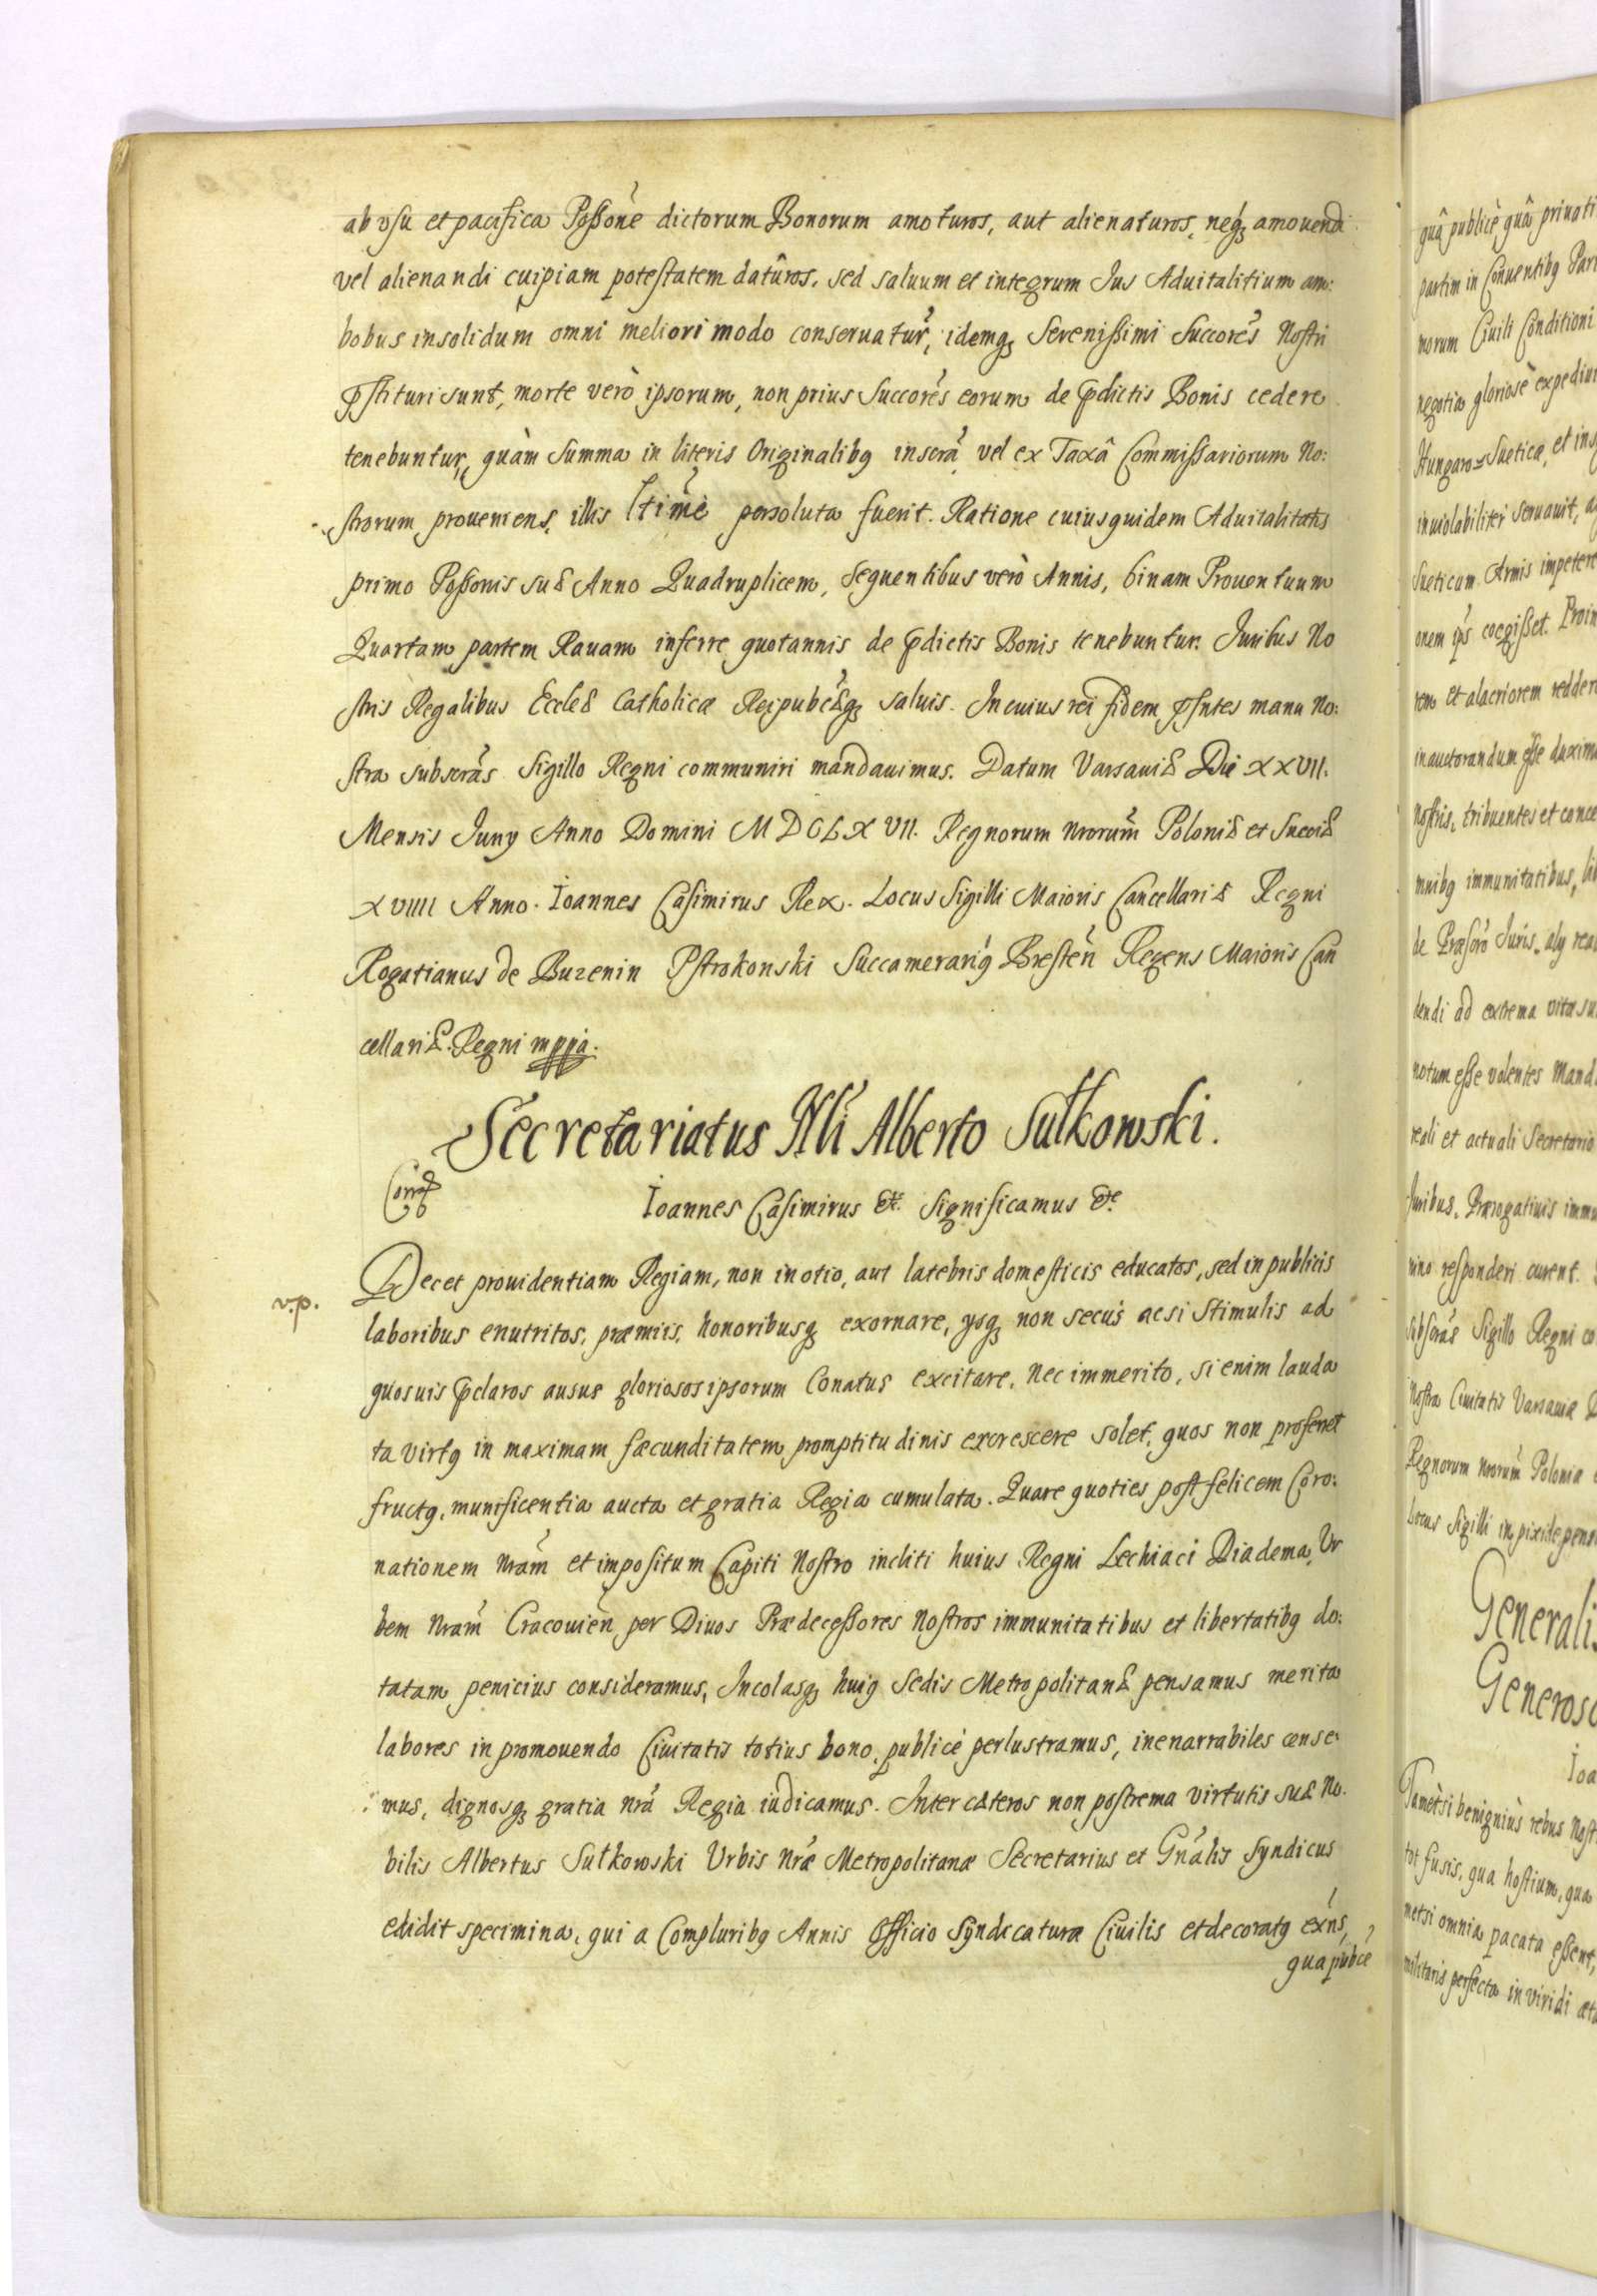 ab vsu et pacifica Possōne dictorum Bonorum amoturos, aut alienaturos, neq; amouendi
vel alienandi cuipiam potestatem datûros, sed saluum et integrum Ius Aduitalitium am:
bobus insolidum omni meliori modo conseruatur̃, idemq; Serenissimi Succorẽs Nostri
pꝛstituri sunt, morte verò ipsorum, non prius Succorẽs eorum de p̃dictis Bonis cedere
tenebuntur, quàm Summa in literis Originalibꝰ inscrã vel ex Taxâ Commissariorum No:
strorum proueniens, illis ltimè persoluta fuerit. Ratione cuiusquidem Aduitalitatis
primo Possonis suæ Anno Quadruplicem, Sequentibus verò Annis, binam Prouentuum
Quartam partem Rauam inferre quotannis de p̃dictis Bonis tenebuntur. Iuribus No
stris Regalibus Ecclæ Catholicæ Reipubcæq; saluis. In cuius rei fidem p̃sntes manu No:
stra subscrãs Sigillo Regni communiri mandauimus. Datum Varsauiæ Die XXVII.
Mensis Iuny Anno Domini MDCLXVII. Regnorum nrorum̃ Poloniæ et Sueciæ
XVIIII Anno. Ioannes Casimirus Rex. Locus Sigilli Maioris Cancellariæ Regni
Rogatianus de Buzenin Pstrokonski Succamerariꝰ Bresten̄ Regens Maioris Can
cellariæ Regni mppia.
Secretariatus Nli Alberto Sułkowski.
Ioannes Casimirus &c. Significamus &c.
v.p.
Decet prouidentiam Regiam, non in otio, aut latebris domesticis educatos, sed in publicis
laboribus enutritos, præmiis, honoribusq; exornare, ysq; non secus acsi Stimulis ad
quosuis p̃claros ausus gloriosos ipsorum Conatus excitare, nec immerito, si enim lauda
ta virtꝰ in maximam fæcunditatem promptitudinis excrescere solet, quos non proferret
fructꝰ, munificentia aucta et gratia Regia cumulata. Quare quoties post felicem Coro:
nationem nram̃ et impositum Capiti Nostro incliti huius Regni Lechiaci Diadema, Vr
bem nram̃ Cracouien̄ per Diuos Prædecessores Nostros immunitatibus et libertatibꝰ do:
tatam penicius consideramus, Incolasq; huiꝰ Sedis Metropolitanæ pensamus merita
labores in promouendo Ciuitatis totius bono, publicè perlustramus, inenarrabiles cense:
mus, dignosq; gratia nrã Regia iudicamus. Inter cæteros non postrema virtutis suæ No.
bilis Albertus Sułkowski Vrbis nræ Metropolitanæ Secretarius et Gnãlis Syndicus
edidit specimina, qui a Compluribꝰ Annis Officio Syndicaturæ Ciuilis et decoratꝰ exñs,
qua pubcè
quâ publicè, quâ priuati
partim in Conuentibꝰ Par
morum Ciuili Conditioni
negotia gloriosè expediui
Hungaro-Suetica, et ins
inuiolabiliter seruauit, a
Sueticum Armis impetere
onem ips coegisset. Proin
rem et alacriorem reddere
inauctorandum esse duxim
Nostris, tribuentes et conce
mnibꝰ immunitatibus, lib
de Præscro Iuris, aly rea
dendi ad extrema vitæ su
notum esse volentes Mand
reali et actuali Secretario
Iuribus, Prærogatiuis immu
nino responderi curent.
subscrãs Sigillo Regni co
nostra Ciuitatis Varsauiæ D
Regnorum nrorum̃ Poloniæ
Locus Sigilli in pixide pens
Generalis
Generoso
Ioa
Tametsi benigniùs rebus Nost
tot fusis, qua hostium, qua
metsi omnia pacata essent,
militaris perfecta in viridi æta